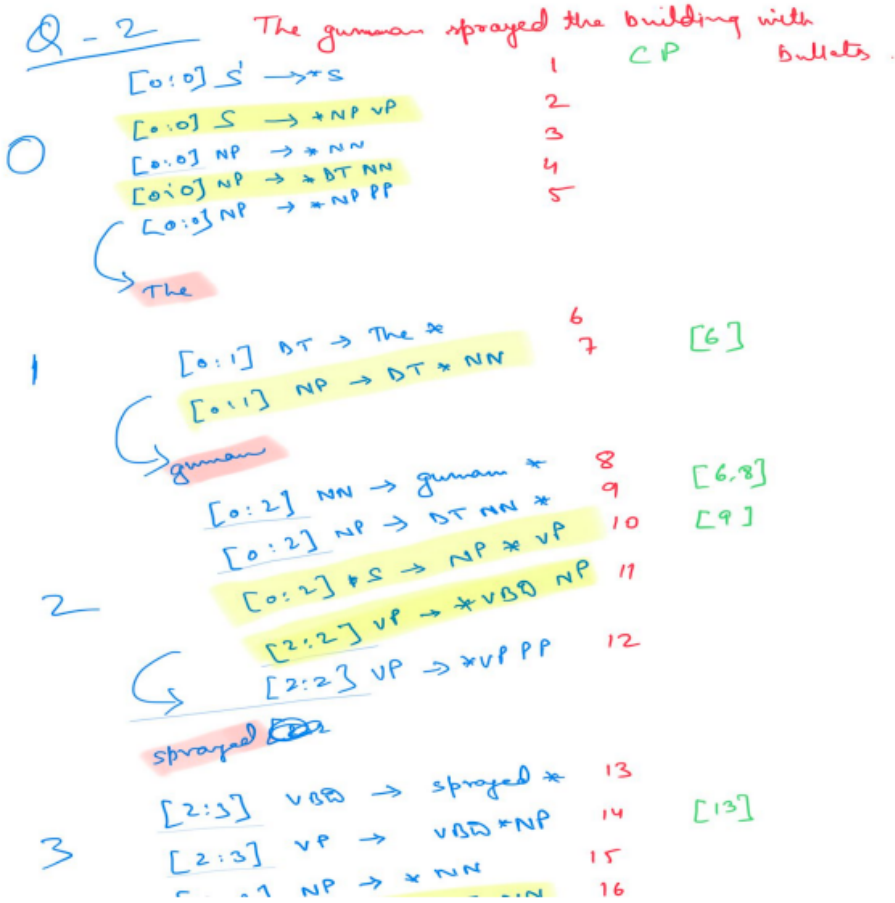 Q-2 The gunman sprayed the building with
bullets.
[0:0] S' → *S 1 CP
[0:0] S → *NP VP 2
0 [0:0] NP → *NN 3
[0:0] NP → *DT NN 4
[0:0] NP → *NP PP 5
The
[0:1] DT → The * 6
1 [0:1] NP → DT * NN 7 [6]
gunman
[0:2] NN → gunman * 8
[0:2] NP → DT NN * 9 [6,8]
[0:2] S → NP * VP 10 [9]
2 [2:2] VP → *VBD NP 11
[2:2] VP → *VP PP 12
sprayed
[2:3] VBD → sprayed * 13
3 [2:3] VP → VBD *NP 14 [13]
NP → * NN 15
NN 16